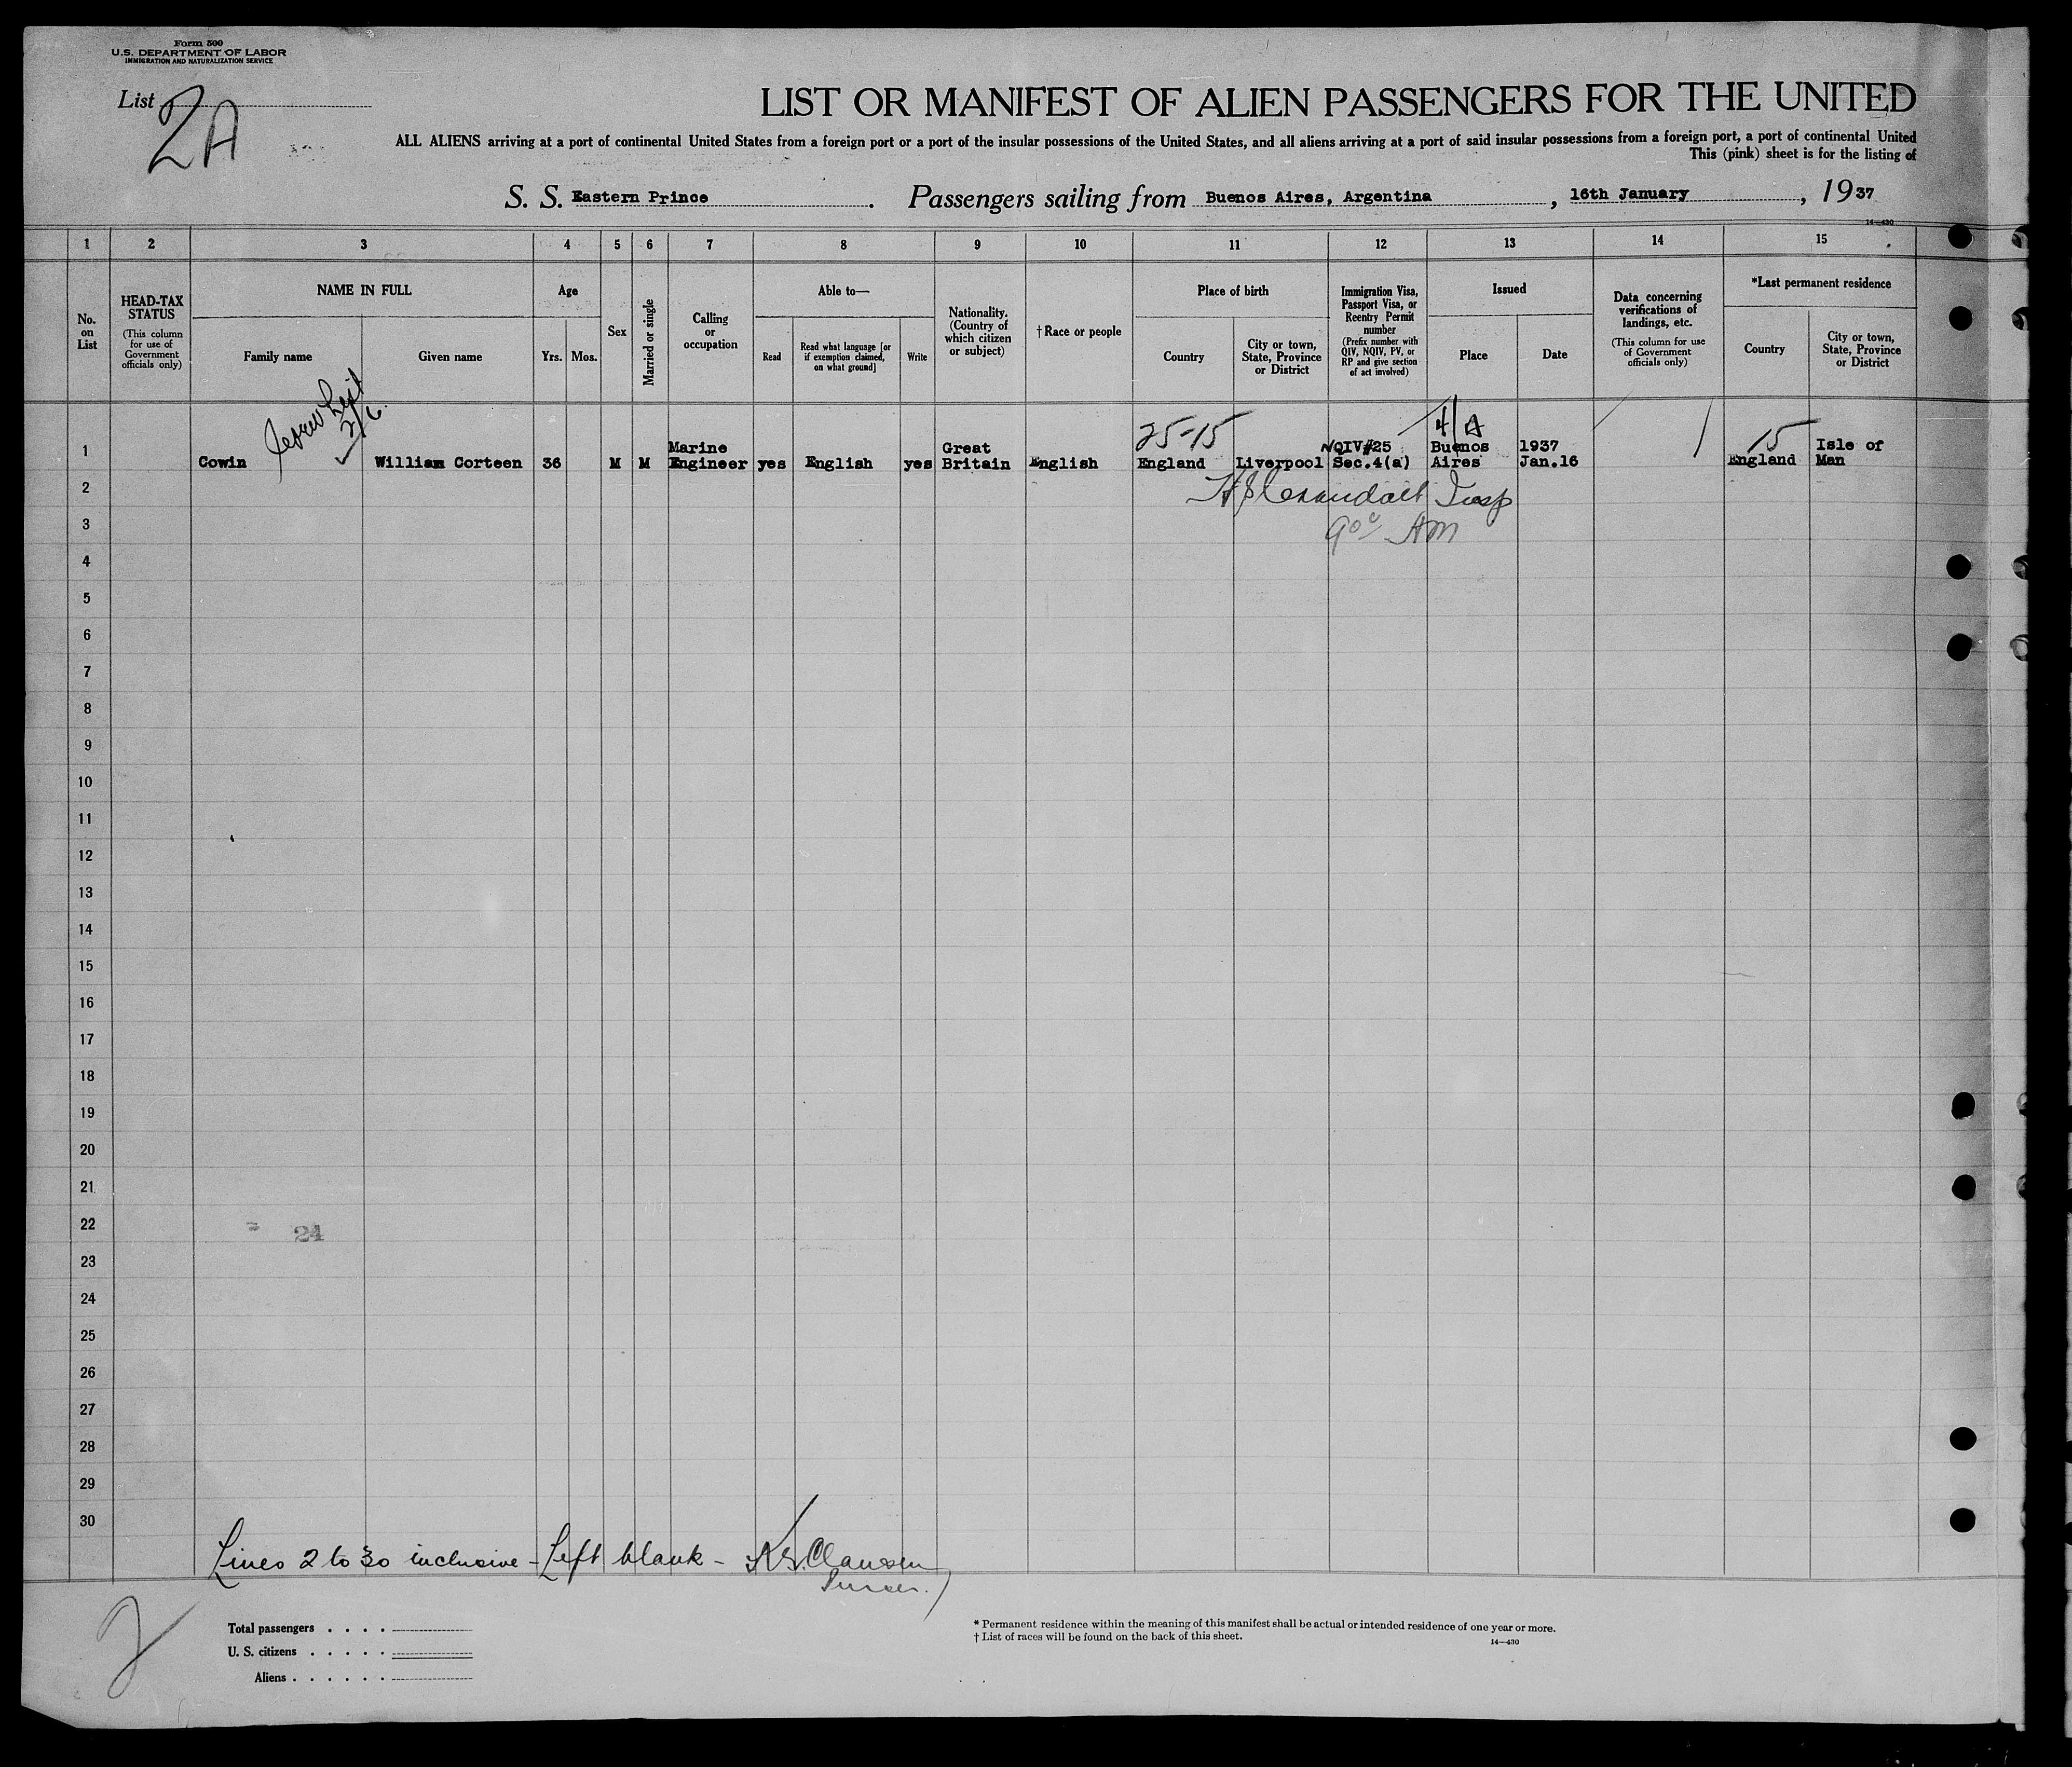 Form 500
U.S. DEPARTMENT OF LABOR
IMMIGRATION AND NATURALIZATION SERVICE
List 2A
LIST OR MANIFEST OF ALIEN PASSENGERS FOR THE UNITED
ALL ALIENS arriving at a port of continental United States from a foreign port or a port of the insular possessions of the United States, and all aliens arriving at a port of said insular possessions from a foreign port, a port of continental United
This (pink) sheet is for the listing of
S. S. Eastern Prince. Passengers sailing from Buenos Aires, Argentina, 16th January, 1937
14—430
1 2 3 4 5 6 7 8 9 10 11 12 13 14 15
No. on List
HEAD-TAX STATUS
(This column for use of Government officials only)
NAME IN FULL
Family name
Given name
Age
Yrs.
Mos.
Sex
Married or single
Calling or occupation
Able to—
Read
Read what language [or if exemption claimed, on what ground]
Write
Nationality. (Country of which citizen or subject)
†Race or people
Place of birth
Country
City or town, State, Province or District
Immigration Visa, Passport Visa, or Reentry Permit number
(Prefix number with QIV, NQIV, PV, or RP and give section of act involved)
Issued
Place
Date
Data concerning verifications of landings, etc.
(This column for use of Government officials only)
*Last permanent residence
Country
City or town, State, Province or District
2/6
25-15
4/A
15
1 Cowin William Corteen 36 M M Marine Engineer yes English yes Great Britain English England Liverpool NQIV#25 Sec.4(a) Buenos Aires 1937 Jan.16 England Isle of Man
2
Insp
3
AM
4
5
6
7
8
9
10
11
12
13
14
15
16
17
18
19
20
21
22
24
23
24
25
26
27
28
29
30
Lines 2 to 30 inclusive - Left blank - Clausen
Purser.
2
Total passengers . . . .
U. S. citizens . . . . .
Aliens . . . . . .
* Permanent residence within the meaning of this manifest shall be actual or intended residence of one year or more.
† List of races will be found on the back of this sheet.
14—430